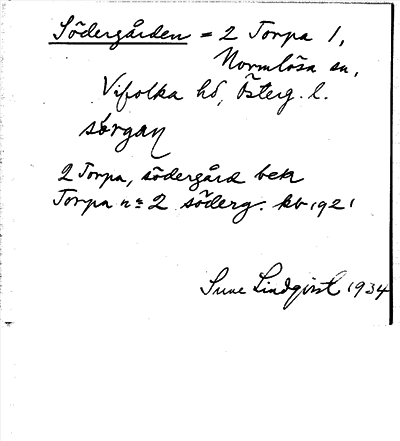 Södergården = 2 Torpa 1,
Normlösa sn,
Vifolka hd, Österg. l.
sörgan
2 Torpa, södergård bek
Torpa nº 2 söderg. kb 1921
Sune Lindqvist 1934